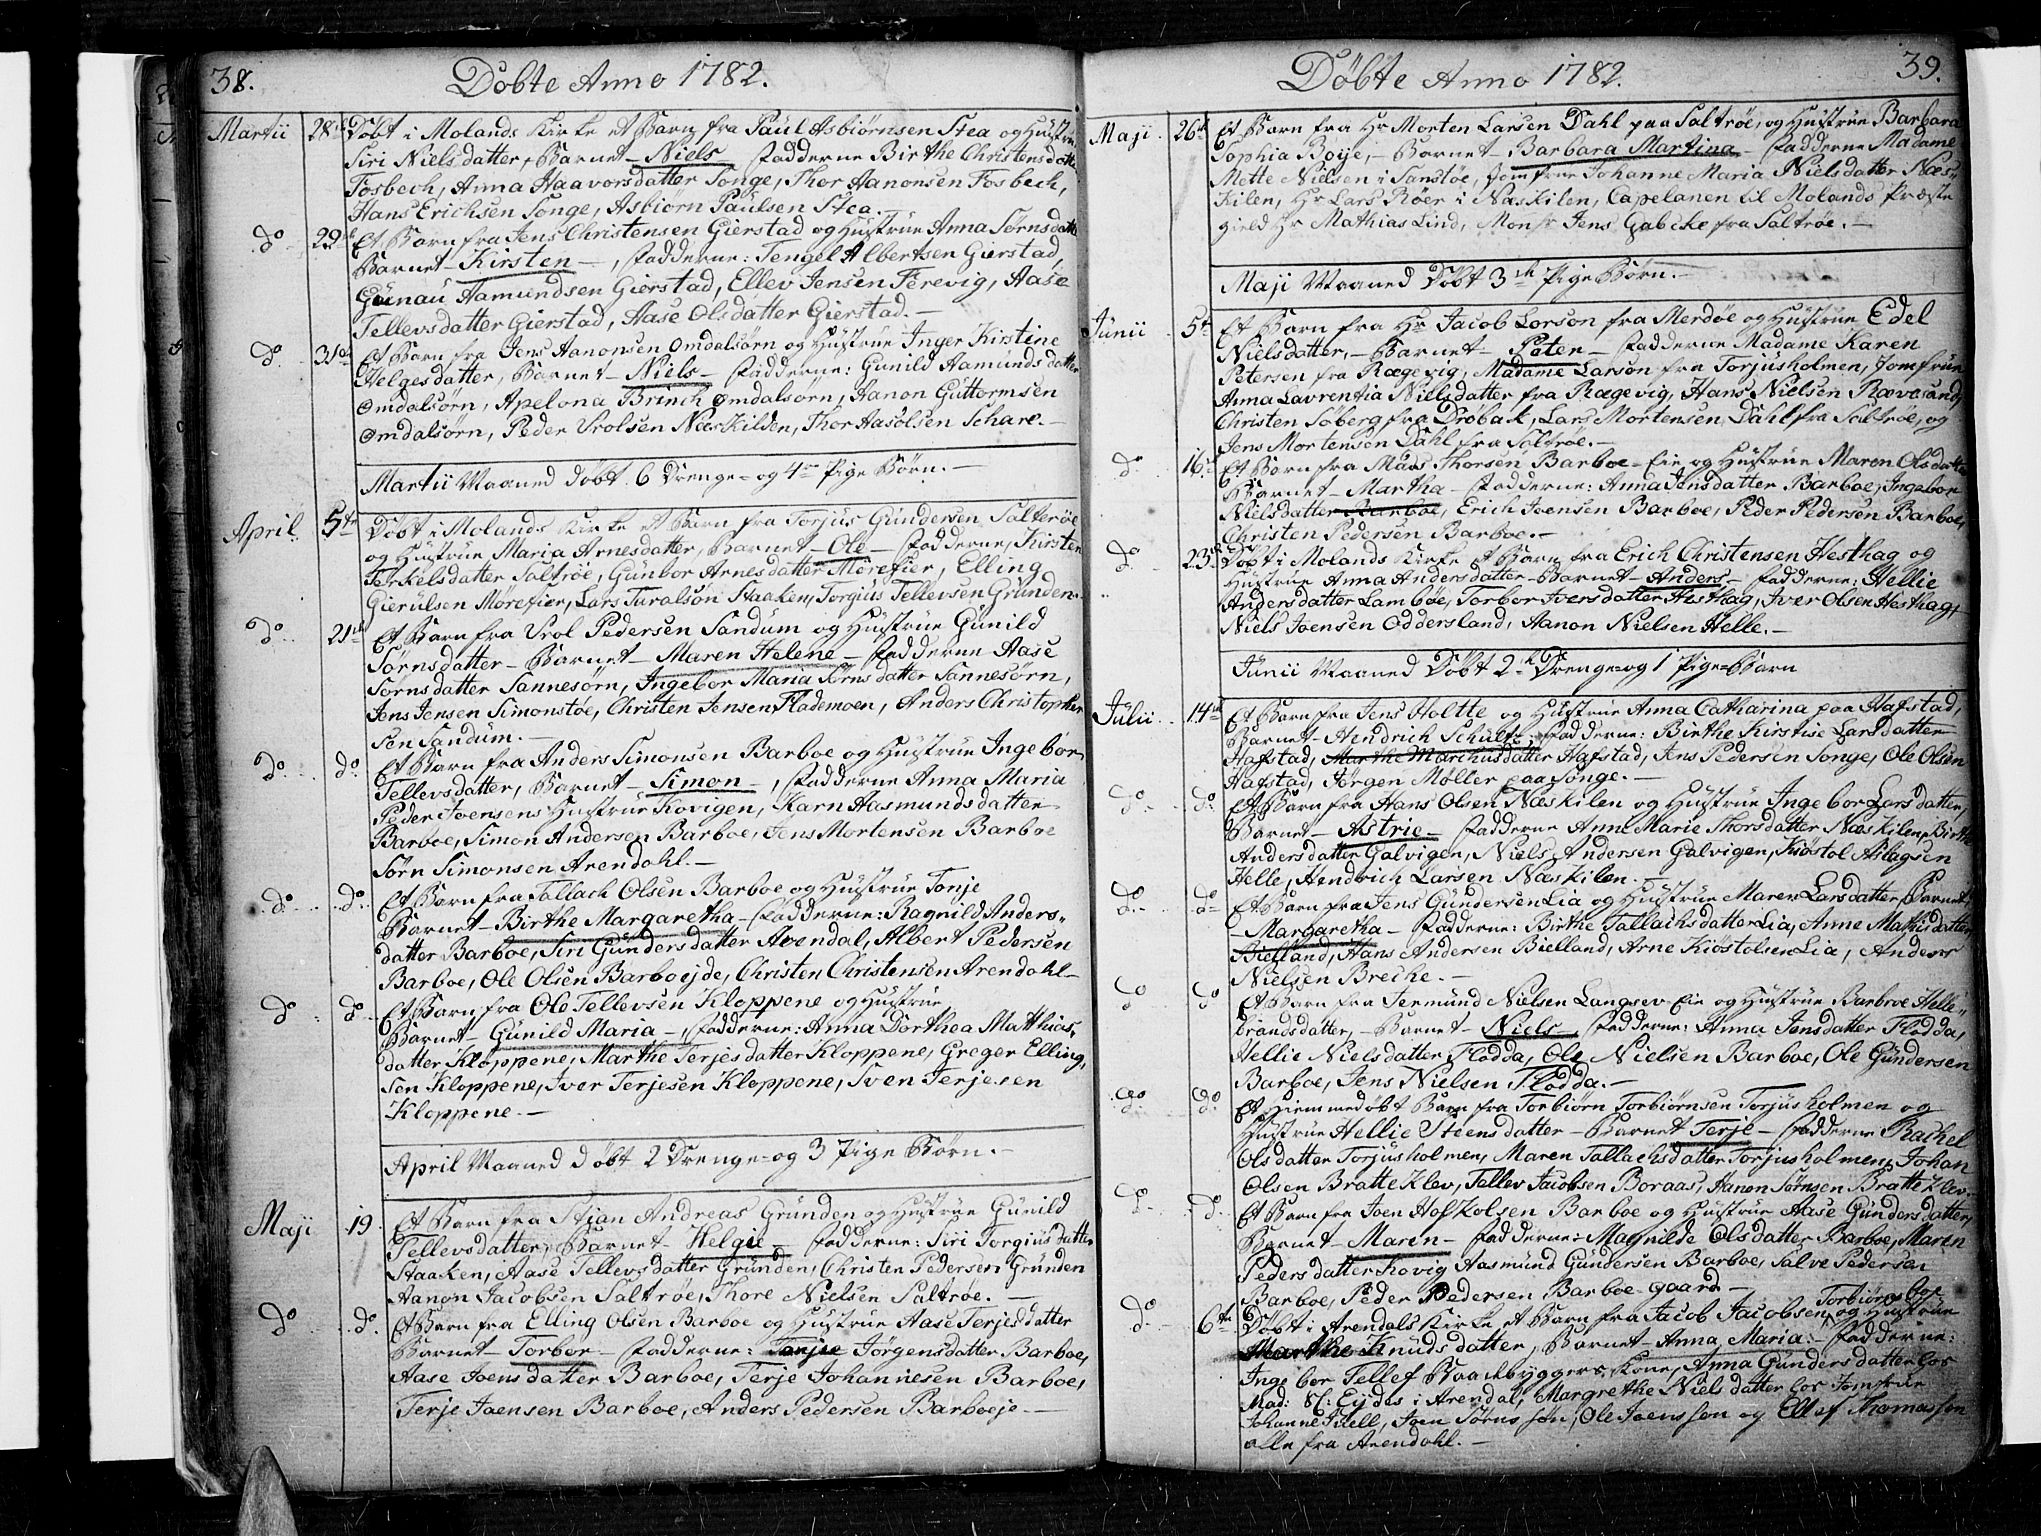 38.
Döbte Anno 1782.
Martii 28de Döbt i Molands Kirke et Barn fra Paul Asbiörnsen Stea og Hustrue
Siri Nielsdatter, Barnet - Niels - Fadderne Birthe Christensdatter
Fosbech, Anna Haavorsdatter Songe, Thor Aanonsen Fosbech,
Hans Erichsen Songe, Asbiörn Paulsen Stea. -
do 29de Et Barn fra Jens Christensen Gierstad og Hustrue Anna Sörnsdatter
Barnet - Kirsten -, Fadderne: Tengel Albertsen Gierstad,
Gunau Aamundsen Gierstad, Ellev Jensen Ferevig, Aase
Tellevsdatter Gierstad, Aase Olsdatter Gierstad. -
do 31de Et Barn fra Jens Aanonsen Omdalsörn og Hustrue Inger Kirstine
Helgesdatter, Barnet - Niels - Fadderne: Gunild Aamundsdatter
Omdalsörn, Apelona Brinch Omdalsörn, Aanon Guttormsen
Omdalsörn, Peder Vrolsen Næskilden, Thor Aasolsen Schare. -
Martii Maaned Döbt 6 Drenge- og 4re Pige Börn. -
April 5te Döbt i Molands Kirke et Barn fra Torjus Gundersen Salteröe
og Hustrue Maria Arnesdatter, Barnet - Ole - Fadderne, Kirsten
Terkelsdatter Saltröe, Gunbor Arnesdatter Mörefier, Elling
Gierulsen Mörefier, Lars Turalsön Staaken, Torgius Tellevsen Grunden.
do 21de Et Barn fra Vrol Pedersen Sandum og Hustrue Gunild
Sörnsdatter - Barnet - Maren Helene - Fadderne Aase
Sörnsdatter Sannesörn, Ingebor Maria Sörnsdatter Sannesörn,
Jens Jensen Simonstöe, Christen Jensen Flademoen, Anders Christopher
sen Sandum. -
do do Et Barn fra Anders Simonsen Barboe og Hustrue Ingebör
Tellevsdatter, Barnet - Simon -, Fadderne Anna Maria
Peder Joensens Hustrue Kovigen, Karn Aasmundsdatter
Barboe, Simon Andersen Barboe, Jens Mortensen Barboe
Sörn Simonsen Arendahl. -
do do Et Barn fra Tallach Olsen Barboe og Hustrue Tonje
Barnet - Birthe Margaretha - Fadderne: Ragnild Anders-
datter Barboe, Siri Gundersdatter Arendal, Albert Pedersen
Barboe, Ole Olsen Barboejde, Christen Christensen Arendahl -
do do Et Barn fra Ole Tellevsen Kloppene og Hustrue
Barnet - Gunild Maria -, Fadderne: Anna Dorthea Matthias,
datter Kloppene, Marthe Terjesdatter Kloppene, Greger Elling,
sen Kloppene, Iver Terjesen Kloppene, Sven Terjesen
Kloppene. -
April Maaned döbt 2 Drenge- og 3 Pige Börn. -
Maji 19. Et Barn fra Stian Andreas Grunden og Hustrue Gunild
Tellevsdatter, Barnet Helgie - Fadderne: Siri Torgiusdatter
Staaken, Aase Tellevsdatter Grunden, Christen Pedersen Grunden
Aanon Jacobsen Saltröe, Thore Nielsen Saltröe. -
do do Et Barn fra Elling Olsen Barboe og Hustrue Aase Terjesdatter
Barnet - Torbor - Fadderne: Tonjie Jörgensdatter Barboe,
Aase Joensdatter Barboe, Terje Johannesen Barboe,
Terje Joensen Barboe, Anders Pedersen Barboeje -
39.
Döbte Anno 1782.
Maji 26de Et Barn fra Hr Morten Larsen Dahl paa Saltröe, og Hustrue Barbara
Sophia Boije, - Barnet - Barbara Martina - Fadderne Madame
Mette Nielsen i Sanstöe, Jomfrue Johanne Maria Nielsdatter Næs-
kilen, Hr Lars Röer i Næskilen, Capelanen til Molands Præste
gield Hr Mathias Lind, Monsr Jens Gabcke fra Saltröe. -
Maji Maaned Döbt 3de Pige Börn. -
Junii 5te Et Barn fra Hr Jacob Lorson fra Merdöe og Hustrue Edel
Nielsdatter, - Barnet - Peter - Fadderne Madame Karen
Petersen fra Rægevig, Madame Larson fra Torjusholmen, Jomfrue
Anna Lavrentia Nielsdatter fra Rægevig, Hans Nielsen Rævesand,
Christen Söberg fra Dröbak, Lars Mortensen Dahl fra Saltröe, og
Jens Mortensen Dahl fra Saltröe. -
do 16de Et Barn fra Mads Thorsen Barboe-Eie og Hustrue Maren Olsdatter
Barnet - Martha - Fadderne: Anna Jensdatter Barboe, Ingebor
Nielsdatter Barboe, Erich Joensen Barboe, Peder Pedersen Barboe,
Christen Pedersen Barboe. -
do 23de Döpt i Molands Kirke et Barn fra Erich Christensen Hesthag og
Hustrue Anna Andersdatter - Barnet - Anders - Fadderne: Hellie
Andersdatter Lamböe, Torbor Iversdatter Hesthag, Iver Olsen Hesthag,
Niels Joensen Oddersland, Aanon Nielsen Helle. -
Junii Maaned Döbt 2de Drenge- og 1 Pige-Barn
Julii 14de Et Barn fra Jens Holtte og Hustrue Anna Catharina paa Hafstad,
Barnet - Hindrich Schult - Fadderne: Birthe Kirstise Larsdatter
Hafstad, Marthe Marchusdatter Hafstad, Jens Pedersen Songe, Ole Olsen
Hafstad, Jörgen Möller paa Songe. -
do do Et Barn fra Hans Olsen Næskilen og Hustrue Ingebor Larsdatter,
Barnet - Astrie - Fadderne Anne Marie Thorsdatter Næskilen, Birthe
Andersdatter Galvigen, Niels Andersen Galvigen, Kiöstol Aslagsen
Helle, Hendrich Larsen Næskilen. -
do do Et Barn fra Jens Gundersen Lia og Hustrue Maren Larsdatter, Barnet
- Margaretha - Fadderne: Birthe Tallachsdatter Lia, Anne Mathisdatter
Bielland, Hans Andersen Bielland, Arne Kiöstolsen Lia, Anders
Nielsen Breche. -
do do Et Barn fra Jermund Nielsen Langsev-Eie og Hustrue Barbroe Helle-
brandsdatter, - Barnet - Niels - Fadderne: Anna Jensdatter Flodda,
Hellie Nielsdatter Flodda, Ole Nielsen Barboe, Ole Gundersen
Barboe, Jens Nielsen Flödda. -
do do Et Hiemmedöbt Barn fra Torbiörn Torbiörnsen Torjusholmen og
Hustrue Hellie Steensdatter - Barnet Terje - Fadderne Rachel
Olsdatter Torjusholmen, Maren Tallachsdatter Torjusholmen, Johan
Olsen Bratteklev, Tellev Jacobsen Boraas, Hanon Sörnsen Bratteklev. -
do do Et Barn fra Joen Hofkolsen Barboe og Hustrue Aase Gundersdatter,
Barnet - Maren - Fadderne: Magnilde Olsdatter Barboe, Maren
Pedersdatter Kovig, Aasmund Gundersen Barboe, Salve Pedersen
Barboe, Peder Pedersen Barboe-gaard -
do 6te Döbt i Arendals Kirke et Barn fra Jacob Jacobsen Torbiörnsboe og Hustrue
Marthe Knudsdatter, Barnet Anna Maria: Fadderne:
Ingebor Tellef Baadbyggers Kone, Anna Gundersdatter hos
Mad: Eydes i Arendal, Margrethe Nielsdatter hos Jomfrue
Johanne Juell, Joen Sörnssön, Ole Joenssen og Ellef Thomassen
alle fra Arendahl. -